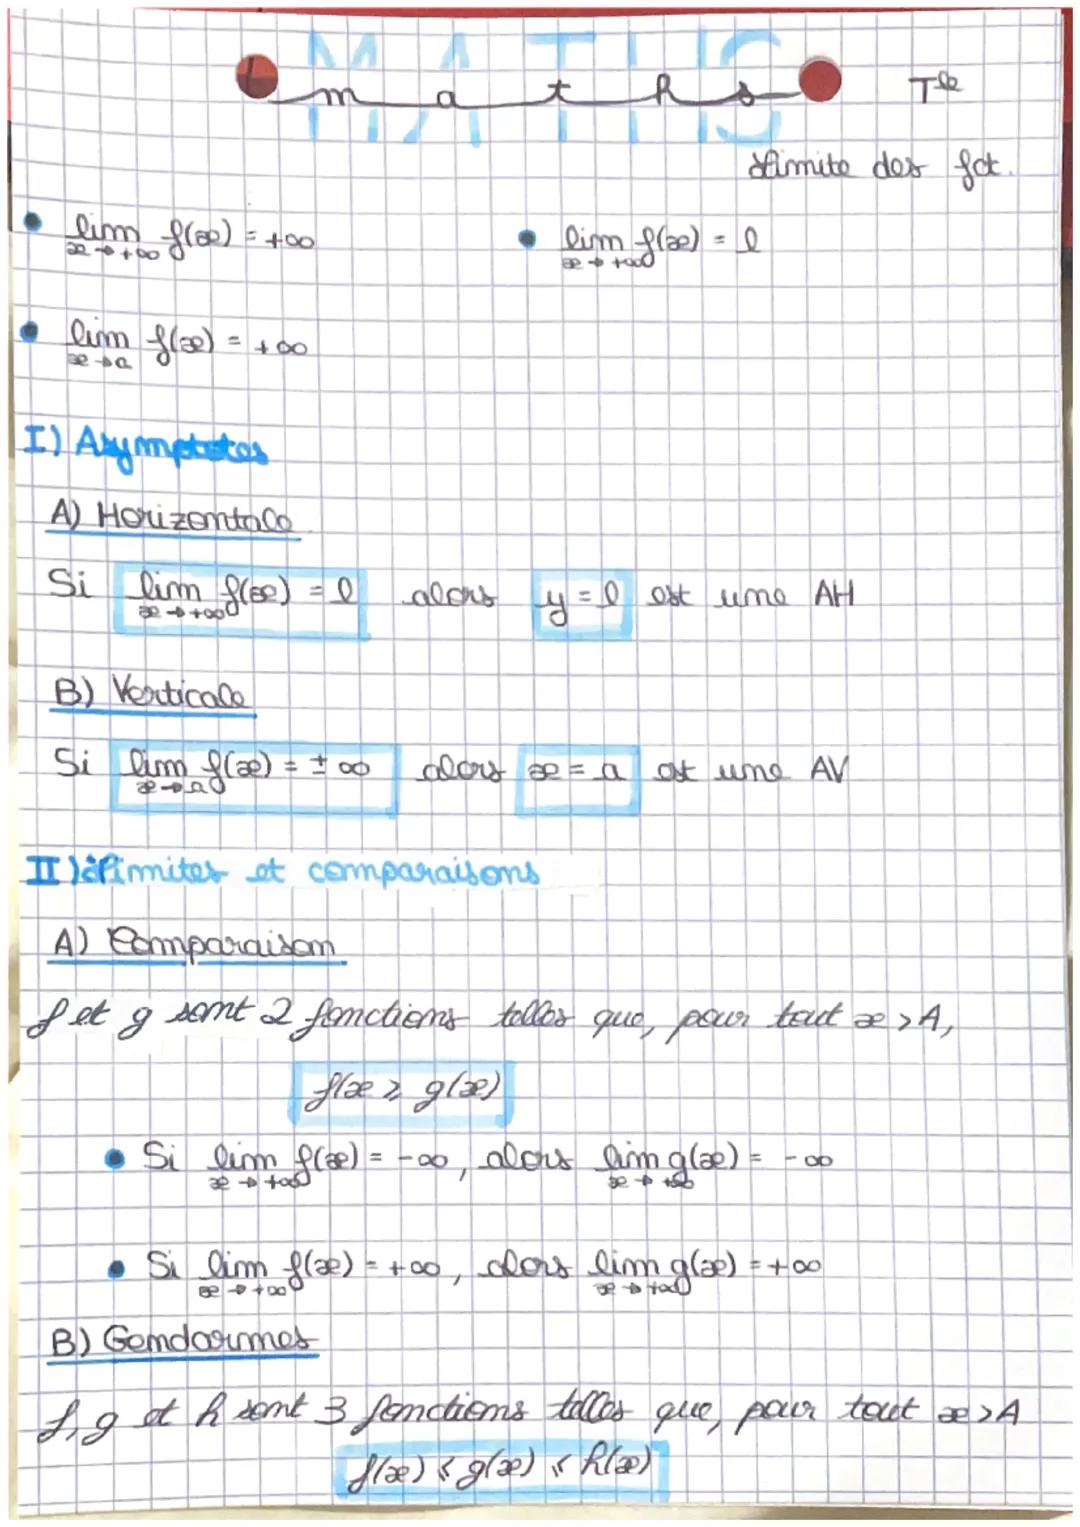 MATHS
maths
Tle
Limite des fct.
lim f(x) = +∞
x→+∞
lim f(x) = l
x→+∞
lim f(x) = +∞
x→a
I) Asymptotes
A) Horizontale
Si lim f(x) = l alors y = l est une AH
x→+∞
B) Verticale
Si lim f(x) = ±∞ alors x = a est une AV
x→a
II) Limites et comparaisons
A) Comparaison
f et g sont 2 fonctions telles que, pour tout x > A,
f(x ⩾ g(x)
• Si lim f(x) = -∞, alors lim g(x) = -∞
x→+∞ x→+∞
• Si lim f(x) = +∞, alors lim g(x) = +∞
x→+∞ x→+∞
B) Gendarmes
f, g et h sont 3 fonctions telles que, pour tout x > A
f(x) ⩽ g(x) ⩽ h(x)